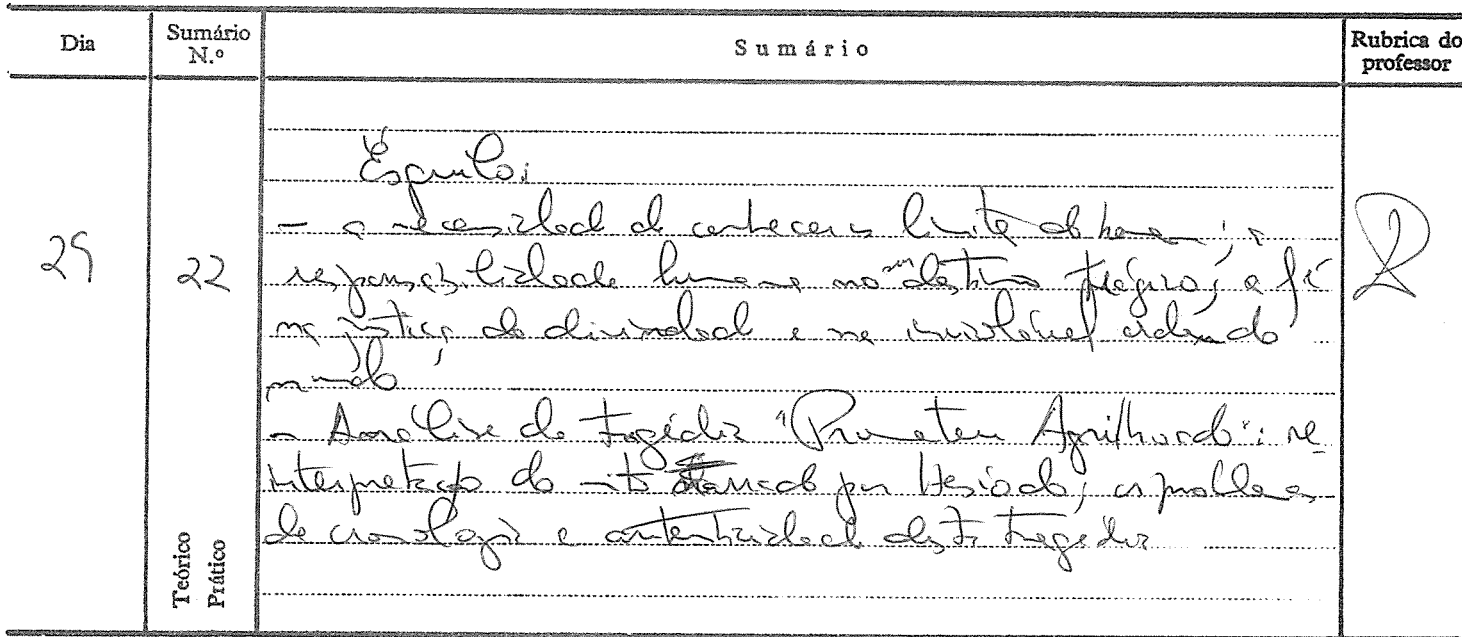 Dia
Sumário N.º
Sumário
Rubrica do professor
29
22
Teórico
Prático
Ésquilo:
- a necessidade de conhecer os limites do homem; a
responsabilidade humana no seu destino trágico; a fé
na justiça da divindade e na inviolável ordem do
mundo
- Análise da tragédia "Prometeu Agrilhoado": re-
interpretação do mito narrado por Hesíodo; os problemas
de cronologia e autenticidade desta tragédia